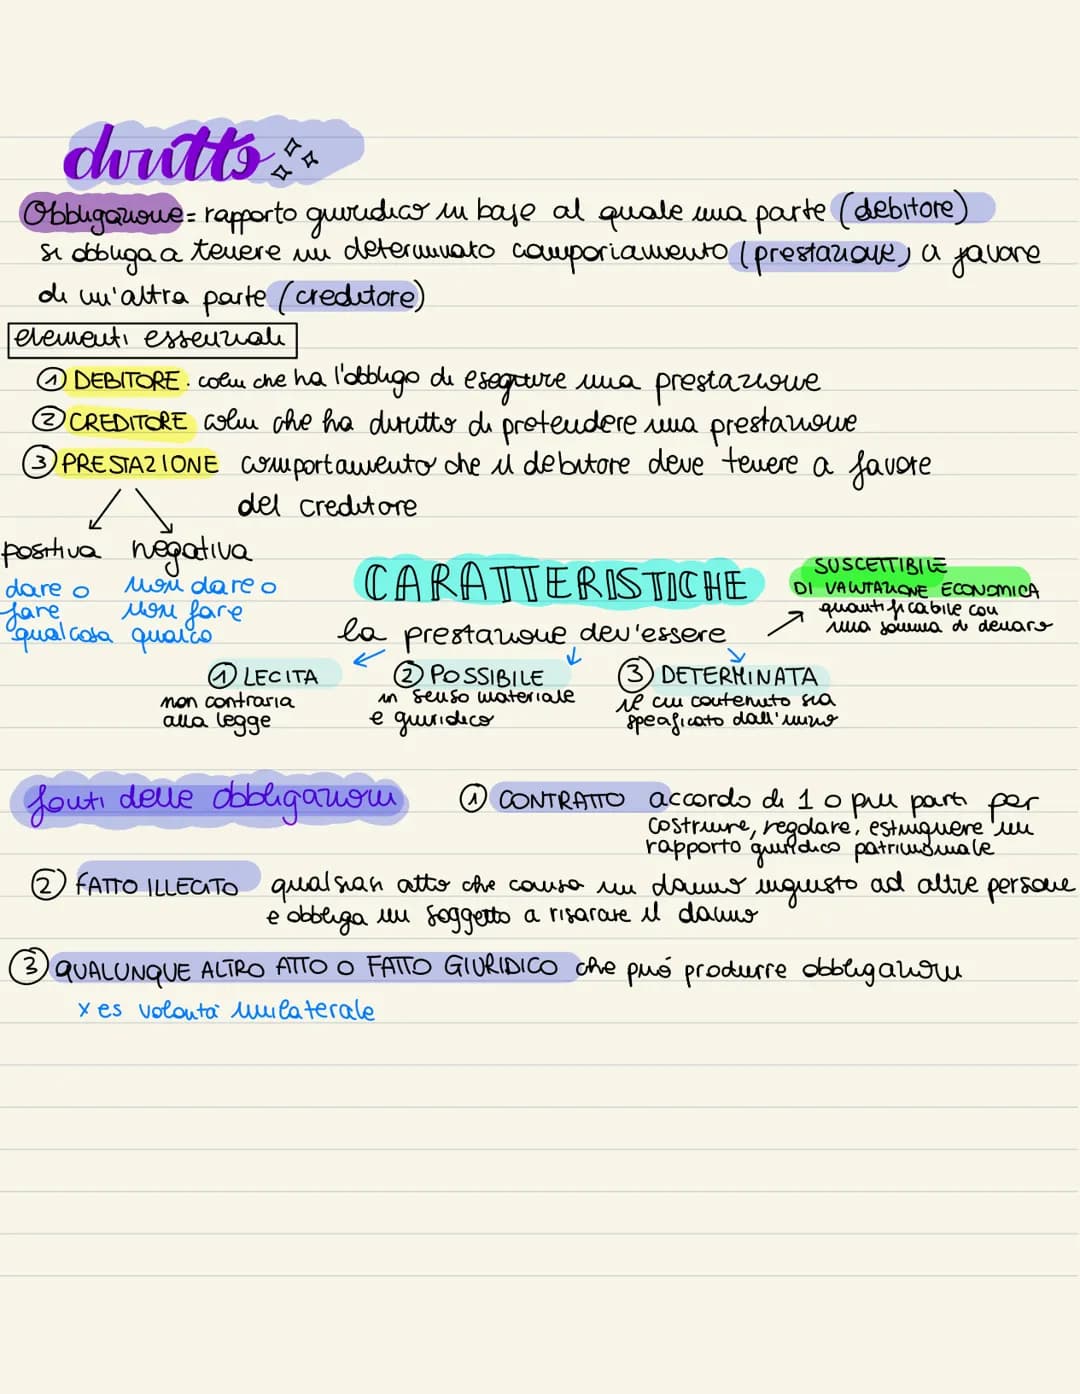 diritto
Obbligazione = rapporto giuridico in base al quale una parte (debitore)
si obbliga a tenere un determinato comportamento (prestazione) a favore
di un'altra parte (creditore)
elementi essenziali
① DEBITORE. colui che ha l'obbligo di eseguire una prestazione
② CREDITORE colui che ha diritto di pretendere una prestazione
③ PRESTAZIONE comportamento che il debitore deve tenere a favore
del creditore
positiva negativa
dare o
fare
qualcosa
non dare o
non fare
qualco
CARATTERISTICHE
SUSCETTIBILE
DI VALUTAZIONE ECONOMICA
quantificabile con
una somma di denaro
la prestazione dev'essere
① LECITA
non contraria
alla legge
② POSSIBILE
in senso materiale
e giuridico
③ DETERMINATA
il cui contenuto sia
specificato dall'inizio
fonti delle obbligazioni
① CONTRATTO accordo di 1 o più parti per
costruire, regolare, estinguere un
rapporto giuridico patrimoniale
② FATTO ILLECITO qualsiasi atto che causa un danno ingiusto ad altre persone
e obbliga un soggetto a risarare il danno
③ QUALUNQUE ALTRO ATTO O FATTO GIURIDICO che può produrre obbligazioni
x es volontà unilaterale